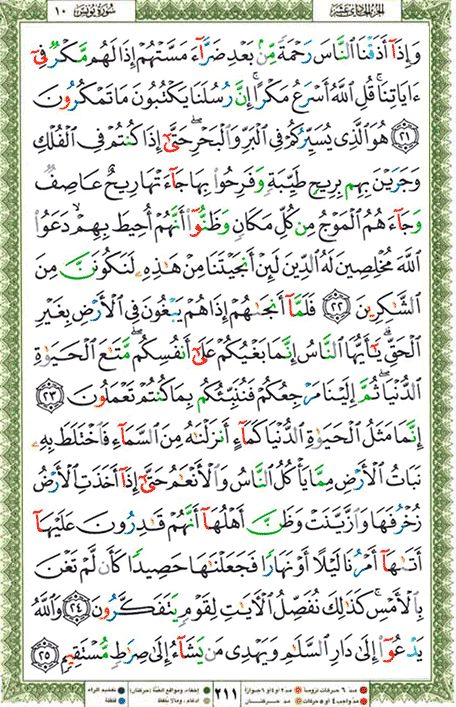 الجزء الحادي عشر
سورة يونس ١٠
وَإِذَآ أَذَقْنَا النَّاسَ رَحْمَةً مِّنۢ بَعْدِ ضَرَّآءَ مَسَّتْهُمْ إِذَا لَهُم مَّكْرٌ فِىٓ
ءَايَاتِنَا ۚ قُلِ اللَّهُ أَسْرَعُ مَكْرًا ۚ إِنَّ رُسُلَنَا يَكْتُبُونَ مَا تَمْكُرُونَ
﴿٢١﴾ هُوَ الَّذِى يُسَيِّرُكُمْ فِى الْبَرِّ وَالْبَحْرِ ۖ حَتَّىٰٓ إِذَا كُنتُمْ فِى الْفُلْكِ
وَجَرَيْنَ بِهِم بِرِيحٍ طَيِّبَةٍ وَفَرِحُوا۟ بِهَا جَآءَتْهَا رِيحٌ عَاصِفٌ
وَجَآءَهُمُ الْمَوْجُ مِن كُلِّ مَكَانٍ وَظَنُّوٓا۟ أَنَّهُمْ أُحِيطَ بِهِمْ ۙ دَعَوُا۟
اللَّهَ مُخْلِصِينَ لَهُ الدِّينَ لَئِنْ أَنجَيْتَنَا مِنْ هَٰذِهِۦ لَنَكُونَنَّ مِنَ
الشَّٰكِرِينَ ﴿٢٢﴾ فَلَمَّآ أَنجَىٰهُمْ إِذَا هُمْ يَبْغُونَ فِى الْأَرْضِ بِغَيْرِ
الْحَقِّ ۗ يَٰٓأَيُّهَا النَّاسُ إِنَّمَا بَغْيُكُمْ عَلَىٰٓ أَنفُسِكُم ۖ مَّتَٰعَ الْحَيَوٰةِ
الدُّنْيَا ۖ ثُمَّ إِلَيْنَا مَرْجِعُكُمْ فَنُنَبِّئُكُم بِمَا كُنتُمْ تَعْمَلُونَ ﴿٢٣﴾
إِنَّمَا مَثَلُ الْحَيَوٰةِ الدُّنْيَا كَمَآءٍ أَنزَلْنَٰهُ مِنَ السَّمَآءِ فَاخْتَلَطَ بِهِۦ
نَبَاتُ الْأَرْضِ مِمَّا يَأْكُلُ النَّاسُ وَالْأَنْعَٰمُ حَتَّىٰٓ إِذَآ أَخَذَتِ الْأَرْضُ
زُخْرُفَهَا وَازَّيَّنَتْ وَظَنَّ أَهْلُهَآ أَنَّهُمْ قَٰدِرُونَ عَلَيْهَآ
أَتَىٰهَآ أَمْرُنَا لَيْلًا أَوْ نَهَارًا فَجَعَلْنَٰهَا حَصِيدًا كَأَن لَّمْ تَغْنَ
بِالْأَمْسِ ۚ كَذَٰلِكَ نُفَصِّلُ الْآيَٰتِ لِقَوْمٍ يَتَفَكَّرُونَ ﴿٢٤﴾ وَاللَّهُ
يَدْعُوٓا۟ إِلَىٰ دَارِ السَّلَٰمِ وَيَهْدِى مَن يَشَآءُ إِلَىٰ صِرَٰطٍ مُّسْتَقِيمٍ ﴿٢٥﴾
٢١١
مد ٦ حركات لزوماً
مد ٢ او ٤ او ٦ جوازاً
إخفاء، ومواقع الغنة (حركتان)
تفخيم الراء
مد واجب ٤ او ٥ حركات
مد حركتان
ادغام، ومالا يلفظ
قلقلة